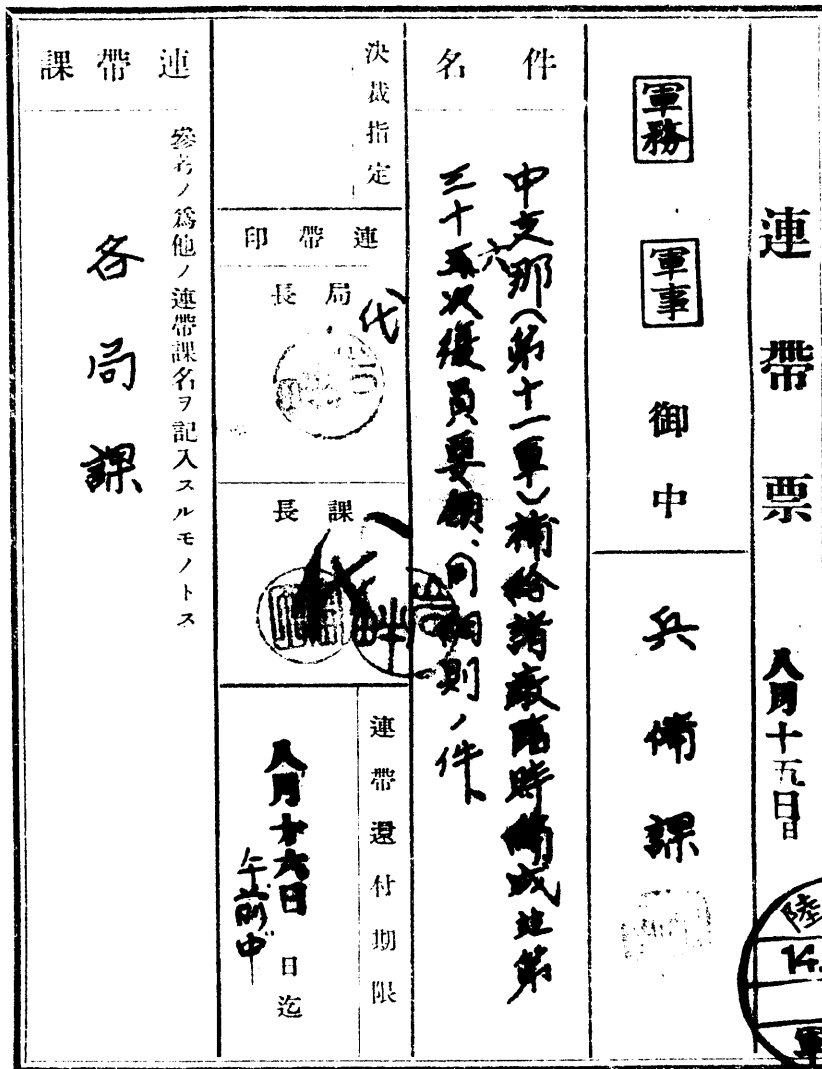 連帶票
八月十五日
陸
14.
軍
軍務
軍事
御中
兵備課
件名
中支那(第十一軍)補給諸廠臨時編成並第
三十六次復員要領、同細則ノ件
決裁指定
連帶印
局長
代
課長
代
連帶還付期限
八月十六日
午前中
日迄
連帶課
參考ノ爲他ノ連帶課名ヲ記入スルモノトス
各局課